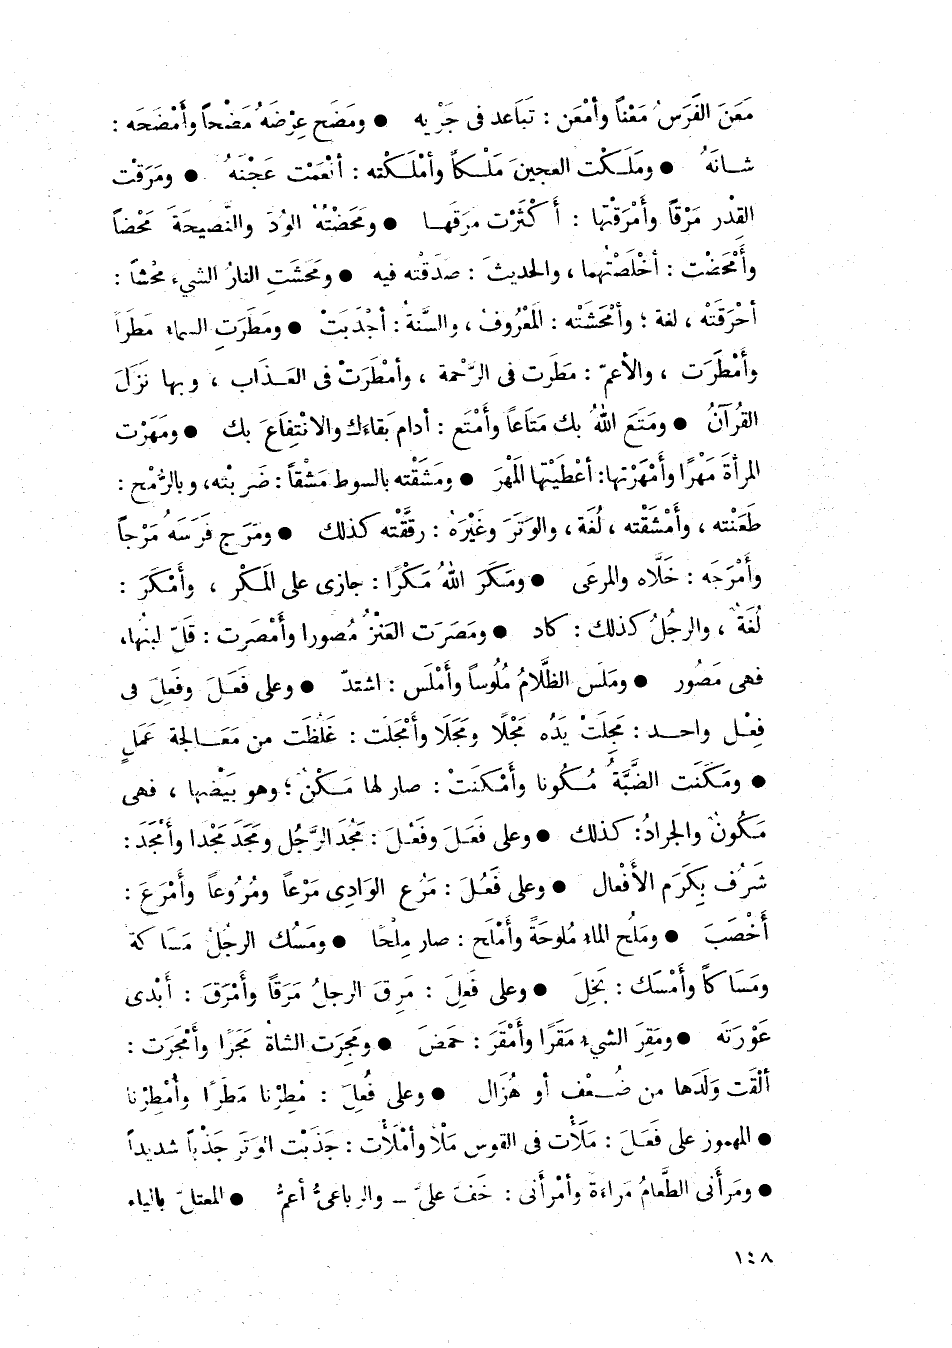 مَعَنَ الفَرَسُ مَعْناً وأمْعَن : تَبَاعد فى جَرْيه ● ومَضَح عِرْضَهُ مَضْحاً وأَمْضَحَه :
شانَهُ ● ومَلَكْت العجينَ مَلْكاً وأمْلَكْته : أنْعَمْت عَجْنَهُ ● ومَرَقْت
القِدْر مَرْقاً وأَمْرَقْتها : أَكْثَرْت مرَقَها ● ومَحَضْتُهُ الوُدَ والنَّصيحَةَ مَحْضاً
وأَمْحَضْت : أخْلَصْتُهما ، والحديثَ : صدَقْته فيه ● ومَحَشَتِ النارُ الشيءَ مَحْشاً :
أحْرَقَتْه ، لغة ؛ وأمْحَشَتْه : المَعْرُوفُ ، والسَّنةُ : أجْدَبَتْ ● ومَطَرَتِ السماء مَطَراً
وأَمْطَرَت ، والأعمّ : مَطَرت فى الرَّحْمة ، وأمْطَرَتْ فى العَذَاب ، وبها نَزَلَ
القُرآنُ ● ومَتَعَ اللهُ بك مَتَاعاً وأَمْتَع : أدام بَقاءَك والانْتِفاَعَ بك ● ومَهَرْت
المرأةَ مَهْرًا وأَمْهَرْتها: أعْطَيْتها المَهْرَ ● ومَشَقْته بالسوط مَشْقاً : ضَربْته، وبالرُّمْح :
طَعَنْته ، وأَمْشَقْته ، لُغَة ، والوَتَرَ وغَيْرَهُ : رقَّقْته كذلك ● ومَرَج فَرَسَهُ مَرْجاً
وأَمْرَجَه : خَلَّاه والمرعَى ● ومَكَرَ اللهُ مَكْرًا : جازى على المَكْر ، وأَمْكَرَ :
لُغَةٌ ، والرجُلُ كذلك : كاد ● ومَصَرَت العَنْزُ مُصورا وأَمْصَرت : قَلّ لبنُها،
فهى مَصُور ● ومَلَس الظَّلامُ مُلُوساً وأَمْلَس : اشتدّ ● وعلى فَعَلَ وفَعِلَ فى
فِعْل واحد : مَجِلَتْ يَدُه مَجْلًا ومَجَلَا وأَمْجَلَت : غَلظَت من مَعَالجة عَمَلٍ
● ومَكَنَت الضَّبَّةُ مُكُونا وأَمْكنَتْ : صار لها مَكْنٌ ؛ وهو بَيْضُها ، فهى
مَكُونٌ والجرادُ: كذلك ● وعلى فَعَلَ وفَعُلَ : مَجُدَ الرَّجُل ومَجَدَ مَجْدا وأَمْجَدَ :
شَرُف بِكَرَم الأَفْعال ● وعلى فَعُلَ : مَرُع الوَادِى مَرْعاً ومُرُوعاً وأَمْرَعَ :
أَخْصَبَ ● ومَلُح الماء مُلوحَةً وأَمْلَح : صار مِلْحًا ● ومَسُك الرجُلُ مَسَاكة
ومَسَاكاً وأَمْسَك : بَخِلَ ● وعلى فَعِلَ : مَرِقَ الرجلُ مَرَقاً وأَمْرَقَ : أَبْدى
عَوْرَتَه ● ومَقِرَ الشيءِ مَقَرًا وأَمْقَرَ : حَمَضَ ● ومَجِرَت الشاةُ مَجَرًا وأَمْجَرَت :
ألْقَت وَلَدَها من ضُعْف أو هُزَال ● وعلى فُعِلَ : مُطِرْنا مَطَرًا وأُمْطِرْنا
● المهموز على فَعَلَ : مَلَأت فى القوس مَلْأً وأَمْلَأْت : جَذَبْت الوَتَر جَذْباً شديداً
● ومَرأَنى الطَّعامُ مَراءَةَ وأمْرأنى : خَفّ علىَّ – والرباعىُّ أعمُّ ● المعتلّ بالياء
١٤٨